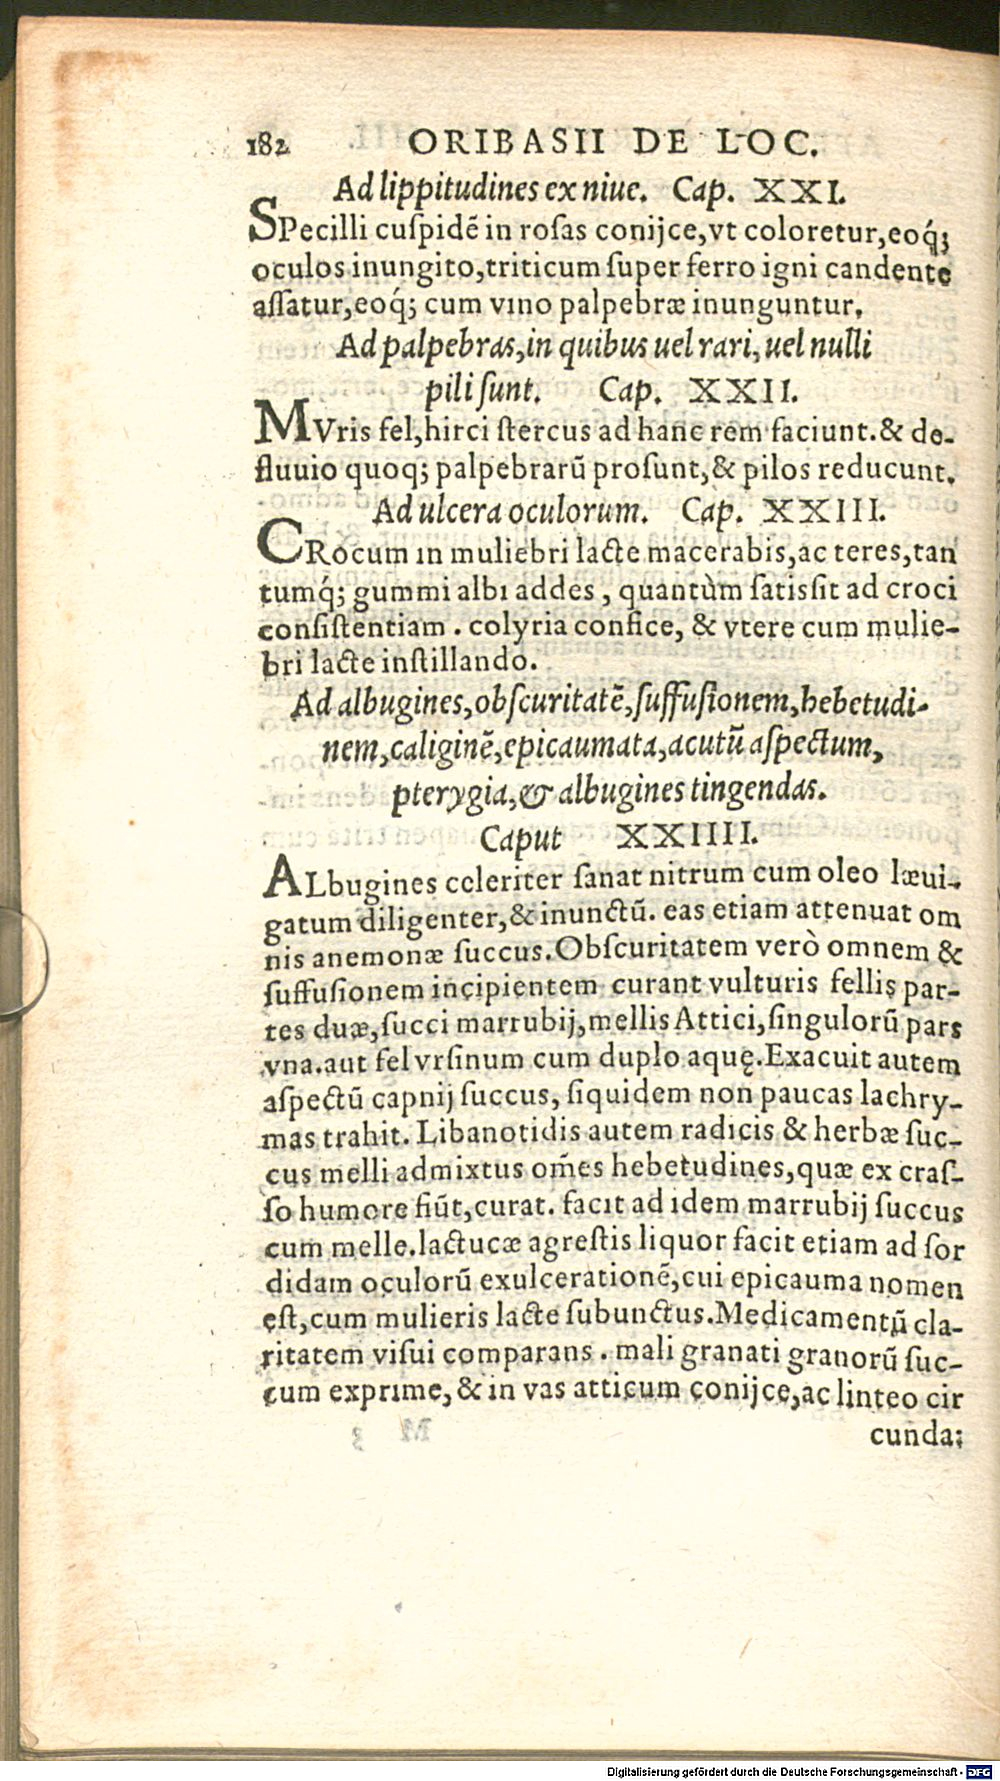 182 ORIBASII DE LOC.
Ad lippitudines ex niue. Cap. XXI.
SPecilli cuſpidē in roſas conijce,vt coloretur,eoq́;
oculos inungito,triticum ſuper ferro igni candente
aſſatur,eoq́; cum vino palpebræ inunguntur.
Ad palpebras,in quibus uel rari, uel nulli
pili ſunt. Cap. XXII.
MVris fel,hirci ſtercus ad hanc rem faciunt.& de-
fluuio quoq; palpebrarū proſunt,& pilos reducunt.
Ad ulcera oculorum. Cap. XXIII.
CRocum in muliebri lacte macerabis,ac teres,tan
tumq́; gummi albi addes , quantùm ſatis ſit ad croci
conſiſtentiam . colyria confice, & vtere cum mulie-
bri lacte inſtillando.
Ad albugines,obſcuritatē,ſuffuſionem,hebetudi-
nem,caliginē,epicaumata,acutū aſpectum,
pterygia,& albugines tingendas.
Caput XXIIII.
ALbugines celeriter ſanat nitrum cum oleo læui-
gatum diligenter,& inunctū. eas etiam attenuat om
nis anemonæ ſuccus.Obſcuritatem verò omnem &
ſuffuſionem incipientem curant vulturis fellis par-
tes duæ,ſucci marrubij,mellis Attici,ſingulorū pars
vna.aut fel vrſinum cum duplo aquę.Exacuit autem
aſpectū capnij ſuccus, ſiquidem non paucas lachry-
mas trahit. Libanotidis autem radicis & herbæ ſuc-
cus melli admixtus om̄es hebetudines,quæ ex craſ-
ſo humore fiūt,curat. facit ad idem marrubij ſuccus
cum melle.lactucæ agreſtis liquor facit etiam ad ſor
didam oculorū exulcerationē,cui epicauma nomen
eſt,cum mulieris lacte ſubunctus.Medicamentū cla-
ritatem viſui comparans . mali granati granorū ſuc-
cum exprime,& in vas atticum conijce,ac linteo cir
cunda:
Digitalisierung gefördert durch die Deutsche Forschungsgemeinschaft - DFG